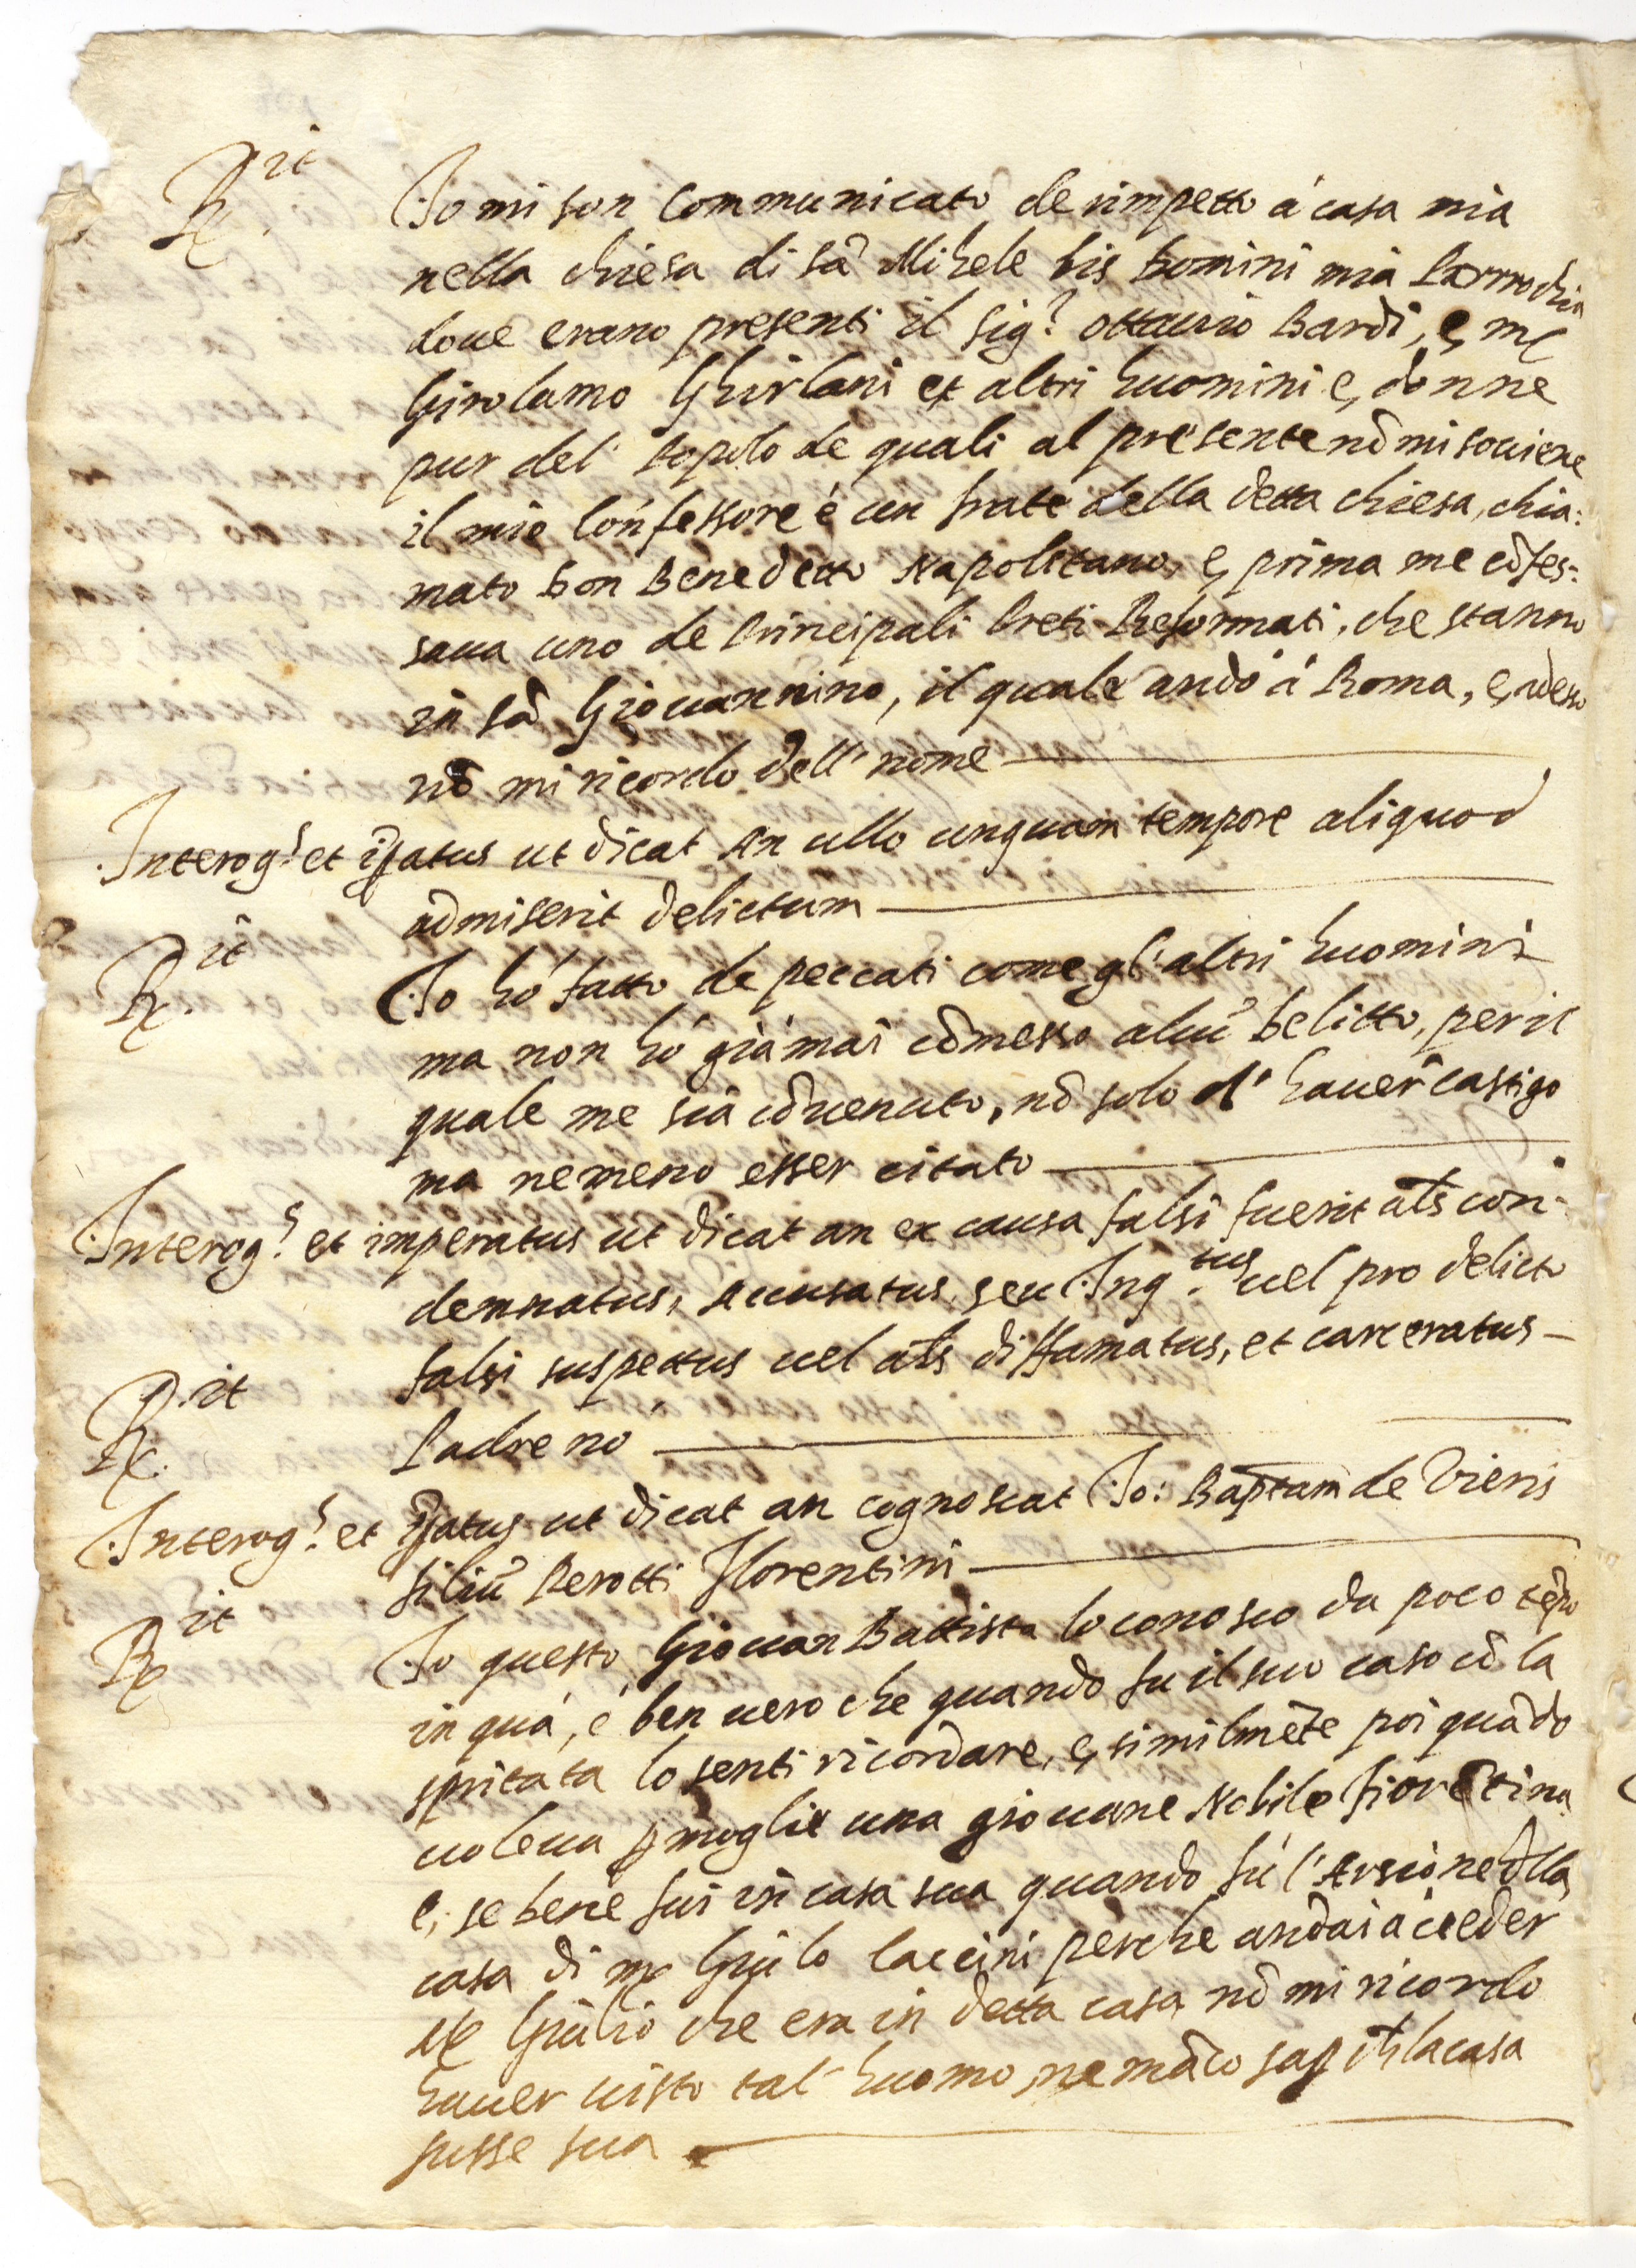 R.it Io mi son Communicato de rimpetto á casa mia
nella chiesa di sā Michele bis Domini mia Parrochia
doue erano presenti il sig.r Ottauio Bardi, e, m
Girolamo Ghirlani et altri huomini e, donne
pur del' popolo de quali al presente nō mi souiene
il mio Confessore é un frate della detta chiesa, chia:
mato Don Benedetto Napoletano, e, prima me cōfes:
saua uno de Principali Preti Reformati, che stanno
in sā Giouannino, il quale andò á Roma, e, adesso
nō mi ricordo dell' nome
Interog.s et iꝑatus ut dicat An ullo unquam tempore aliquod
admiserit delictum
R.it Io hó fatto de peccati come gl'altri huomini
ma non hó giá mai cōmesso alcū Delitto, per il
quale me sia cōuenuto, nō solo d' hauer castigo
ma nemeno esser citato
Interog.s et imperatus ut dicat an ex causa falsi fuerit als con:
demnatus, Accusatus, seu Inq.tus uel pro delicto
falsi suspectus uel als diffamatus, et carceratus
R.it Padre nó
Interog.s et iꝑatus ut dicat an cognoscat Io: Baptam de Vieris
filiū Perotti Florentini
R.it Io questo Giouan Battista lo conosco da poco tēpo
in quá, é ben uero che quando fu il suo caso cō la
spiritata lo senti ricordare, e, similmēte poi quādo
uoleua ꝑ moglie una giouane Nobile fiorētina
e, se bene fui in casa sua quando fú l'Arsione dlla
casa di m Giulo Caccini perche andai á ueder
M Giulio che era in detta casa nō mi ricordo
hauer uisto tal' huomo, ne māco saꝑ ch la casa
fusse sua